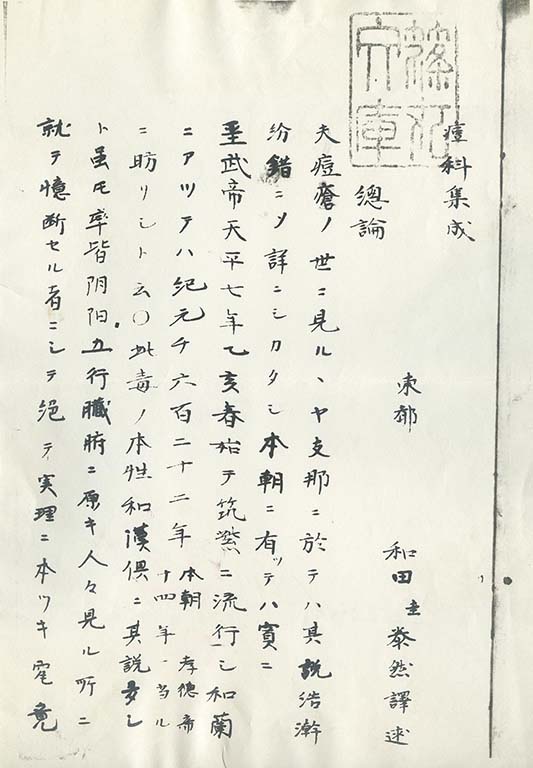 痘科集成
東都 和田 主 泰然譯述
總論
夫痘瘡ノ世ニ見ル丶ヤ支那ニ於テハ其説浩澣
紛錯ニメ詳ニシカタシ本朝ニ有ッテハ實ニ
聖武帝天平七年乙亥春始テ筑紫ニ流行シ和蘭
ニアツテハ紀元千六百二十二年 本朝 孝德帝 十四年 当ル
ニ昉リシト云〇此毒ノ本性和漢俱ニ其説多シ
ト虽モ率皆阴阳五行臓腑ニ原キ人々見ル所ニ
就テ憶断セル者ニシテ絶テ実理ニ本ツキ